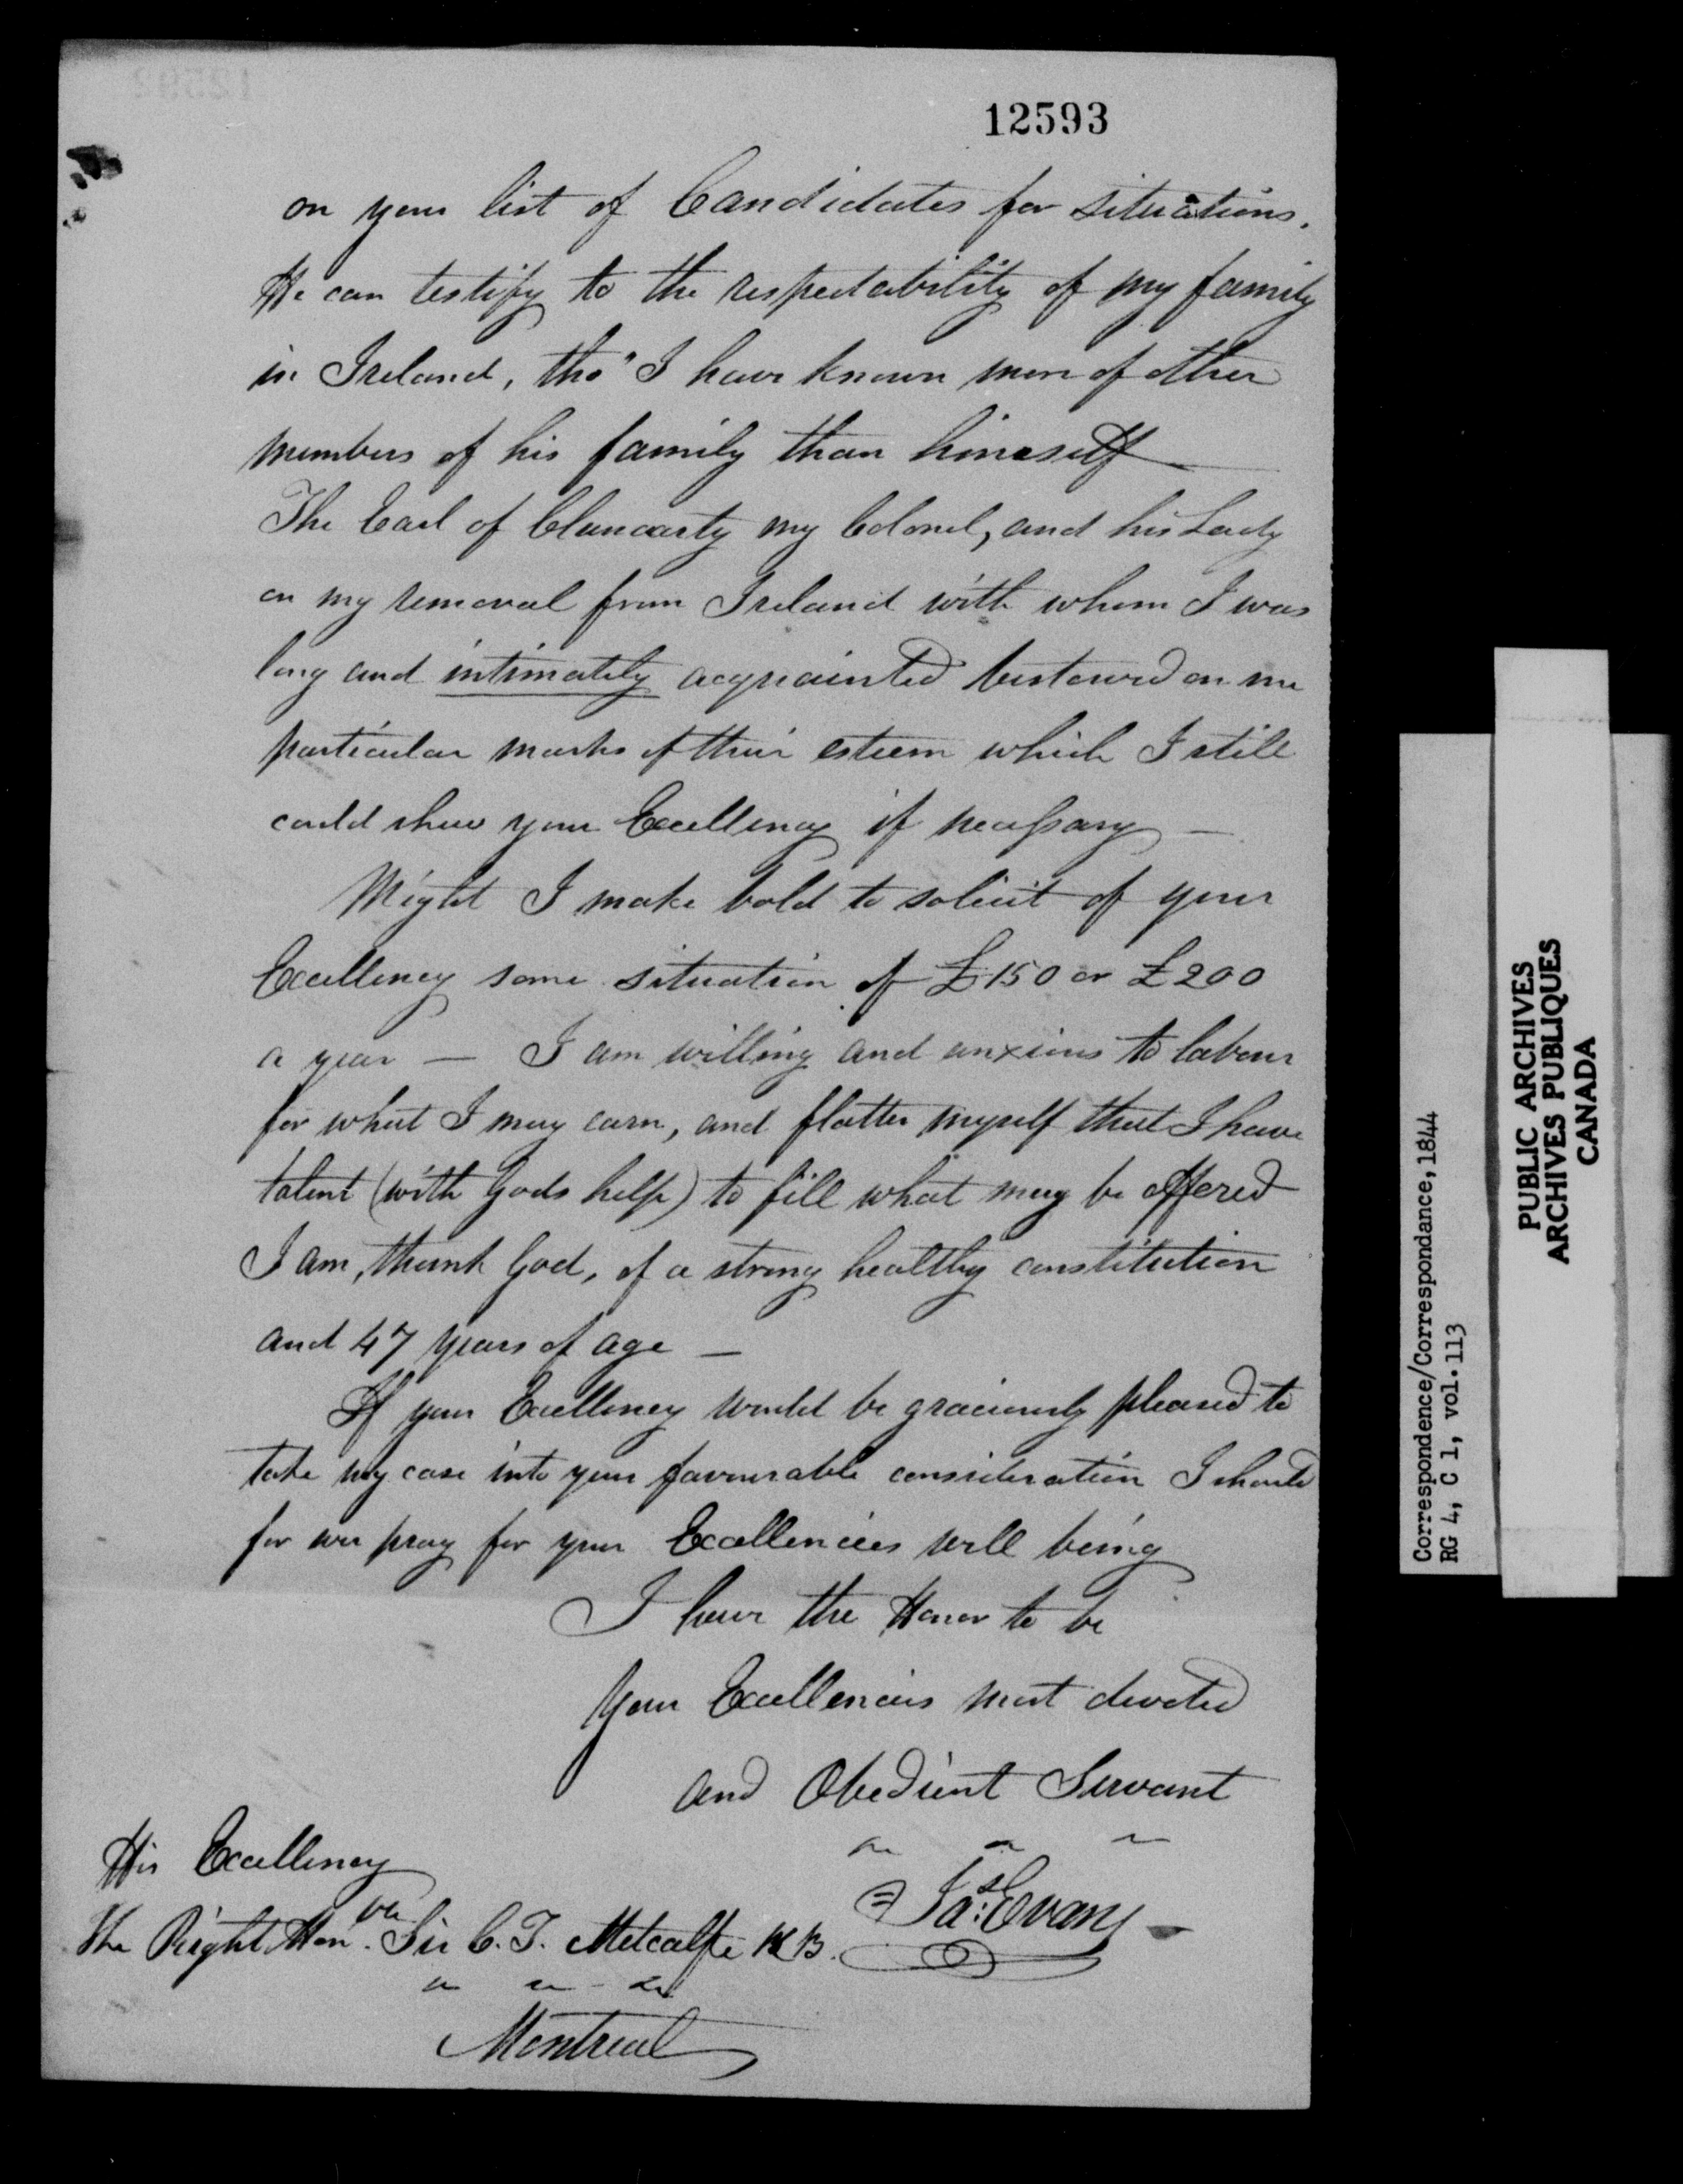 12593
on your list of Candidates for situations.
He can testify to the respectability of my family
in Ireland, tho" I have known more of other
members of his family than himself
The Earl of Clancarty my Colonel, and his Lady
on my removal from Ireland with whom I was
long and intimately acquainted bestowed on me
particular marks of their esteem which I still
could shew your Excellency if necessary —
Might I make bold to solicit of your
Excellency some situation of £150 or £200
a year — I am willing and anxious to labour
for what I may earn, and flatter myself that I have
talent (with Gods help) to fill what may be offered
I am, thank God, of a strong healthy constitution
and 47 years of age —
If your Excellency would be graciously pleased to
take my case into your favourable consideration I should
for ever pray for your Excellencies well being
I have the Honor to be
Your Excellencies most devoted
and Obedient Servant
Jas: Evans
His Excellency
The Right Honble. Sir C. T. Metcalfe KB.
Montreal
Correspondence/Correspondance, 1844
RG 4, C 1, vol. 113
PUBLIC ARCHIVES
ARCHIVES PUBLIQUES
CANADA